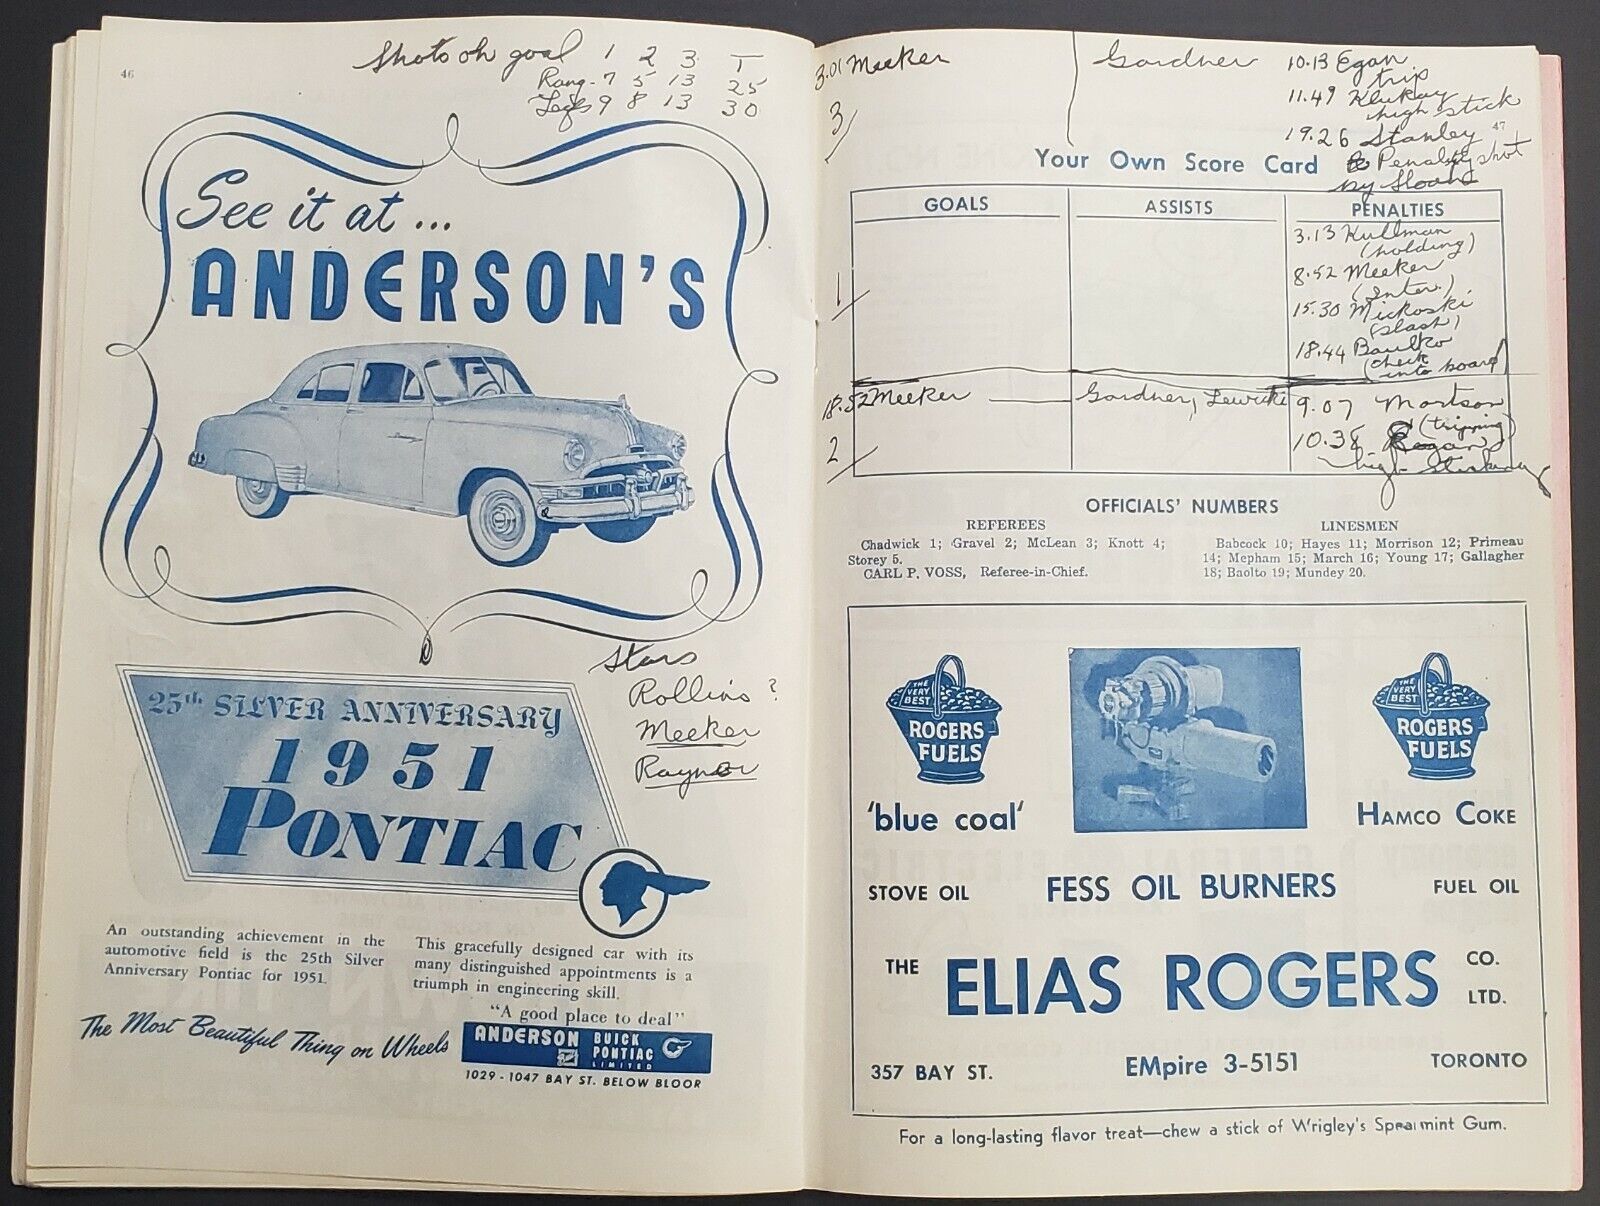 46
Shots on goal 1 2 3 T
Rang - 7 5 13 25
Leafs 9 8 13 30
See it at ...
ANDERSON'S
Stars
Rollins ?
Meeker
Raynor
25th SILVER ANNIVERSARY
1951
PONTIAC
An outstanding achievement in the
automotive field is the 25th Silver
Anniversary Pontiac for 1951.
This gracefully designed car with its
many distinguished appointments is a
triumph in engineering skill.
"A good place to deal"
The Most Beautiful Thing on Wheels
ANDERSON BUICK
PONTIAC
LIMITED
1029 - 1047 BAY ST. BELOW BLOOR
3.01 Meeker Gardner 10.13 Egan
trip
11.49 Klukay
high stick
3/
19.26 Stanley
47
Penalty shot
by Sloan
Your Own Score Card
GOALS ASSISTS PENALTIES
3.13 Kullman
(holding)
8.52 Meeker
(Inter.)
1
15.30 Mickoski
(slash)
18.44 Baulko
(check
into board)
18.52 Meeker Gardner, Lewicki 9.07 Mortson
(tripping)
2
10.38
high sticking
OFFICIALS' NUMBERS
REFEREES
Chadwick 1; Gravel 2; McLean 3; Knott 4;
Storey 5.
CARL P. VOSS, Referee-in-Chief.
LINESMEN
Babcock 10; Hayes 11; Morrison 12; Primeau
14; Mepham 15; March 16; Young 17; Gallagher
18; Baolto 19; Mundey 20.
THE VERY BEST
ROGERS
FUELS
THE VERY BEST
ROGERS
FUELS
'blue coal'
HAMCO COKE
STOVE OIL FESS OIL BURNERS FUEL OIL
THE ELIAS ROGERS CO.
LTD.
357 BAY ST. EMpire 3-5151 TORONTO
For a long-lasting flavor treat—chew a stick of Wrigley's Spearmint Gum.